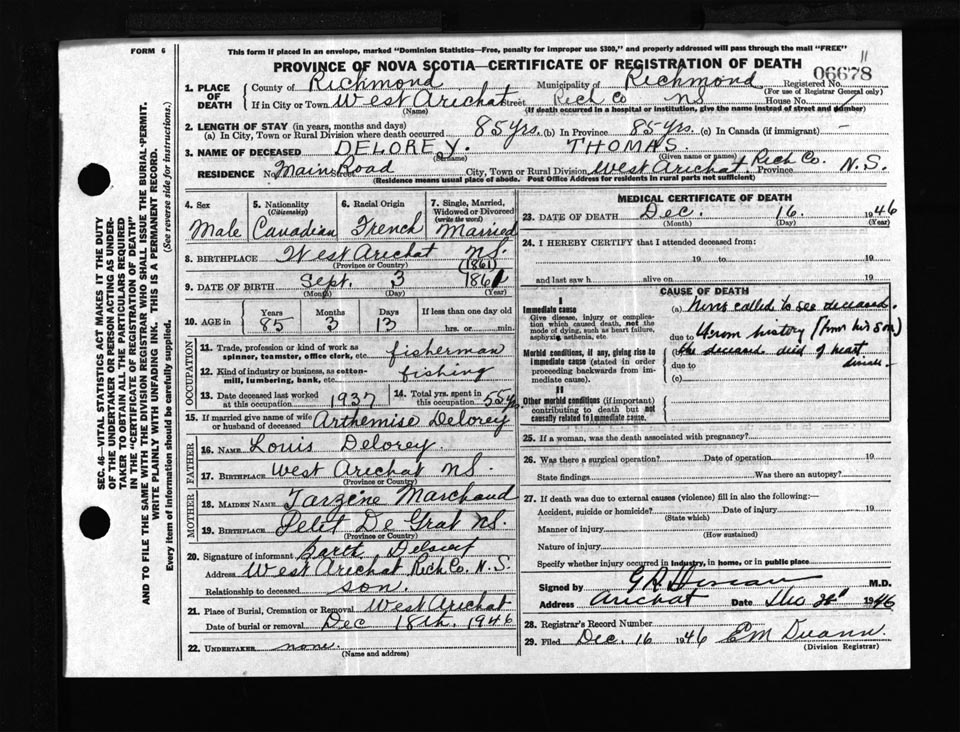 FORM 6
This form if placed in an envelope, marked "Dominion Statistics—Free, penalty for improper use $300," and properly addressed will pass through the mail "FREE"
PROVINCE OF NOVA SCOTIA—CERTIFICATE OF REGISTRATION OF DEATH
11
1. PLACE OF DEATH County of Richmond Municipality of Richmond Registered No. 06678
(For use of Registrar General only)
If in City or Town West Arichat Street Rich Co NS House No.
(Name) (If death occurred in a hospital or institution, give the name instead of street and number)
2. LENGTH OF STAY (in years, months and days)
(a) In City, Town or Rural Division where death occurred 85 yrs. (b) In Province 85 yrs. (c) In Canada (if immigrant) —
3. NAME OF DECEASED DELOREY. THOMAS.
Surname (Given name or names)
RESIDENCE No. Main Road Street City, Town or Rural Division West Arichat, Rich Co. Province N.S.
(Residence means usual place of abode. Post Office Address for residents in rural parts not sufficient)
4. Sex Male
5. Nationality (Citizenship) Canadian
6. Racial Origin French
7. Single, Married, Widowed or Divorced (write the word) Married
8. BIRTHPLACE West Arichat NS.
(Province or Country) (1861)
9. DATE OF BIRTH Sept. 3 1861
(Month) (Day) (Year)
10. AGE in Years 85 Months 3 Days 13 If less than one day old
hrs. or min.
OCCUPATION
11. Trade, profession or kind of work as spinner, teamster, office clerk, etc. fisherman
12. Kind of industry or business, as cotton-mill, lumbering, bank, etc. fishing
13. Date deceased last worked at this occupation 1937 14. Total yrs. spent in this occupation 55 yrs
15. If married give name of wife or husband of deceased Arthemise Delorey
FATHER
16. NAME Louis Delorey.
17. BIRTHPLACE West Arichat NS.
(Province or Country)
MOTHER
18. MAIDEN NAME Tarzene Marchand
19. BIRTHPLACE Petit De Grat NS.
(Province or Country)
20. Signature of informant Delorey
Address West Arichat Rich Co. N.S.
Relationship to deceased son.
21. Place of Burial, Cremation or Removal West Arichat
Date of burial or removal Dec 18th, 1946
22. UNDERTAKER none.
(Name and address)
MEDICAL CERTIFICATE OF DEATH
23. DATE OF DEATH Dec. 16 1946
(Month) (Day) (Year)
24. I HEREBY CERTIFY that I attended deceased from:
19 to 19
and last saw h alive on 19
CAUSE OF DEATH
I
Immediate cause
Give disease, injury or complication which caused death, not the mode of dying, such as heart failure, asphyxia, asthenia, etc.
(a) Never called to see deceased.
due to From history (from his son)
Morbid conditions, if any, giving rise to immediate cause (stated in order proceeding backwards from immediate cause).
(b) the deceased died of heart disease.
due to
(c)
II
Other morbid conditions (if important) contributing to death but not causally related to immediate cause.
25. If a woman, was the death associated with pregnancy?
26. Was there a surgical operation? Date of operation 19
State findings Was there an autopsy?
27. If death was due to external causes (violence) fill in also the following:—
Accident, suicide or homicide? Date of injury 19
(State which)
Manner of injury
(How sustained)
Nature of injury
Specify whether injury occurred in industry, in home, or in public place
Signed by M.D.
Address Arichat Date 1946
28. Registrar's Record Number
29. Filed Dec. 16 1946
(Division Registrar)
SEC. 46—VITAL STATISTICS ACT MAKES IT THE DUTY
OF THE UNDERTAKER OR PERSON ACTING AS UNDER-
TAKER TO OBTAIN ALL THE PARTICULARS REQUIRED
IN THE "CERTIFICATE OF REGISTRATION OF DEATH"
AND TO FILE THE SAME WITH THE DIVISION REGISTRAR WHO SHALL ISSUE THE BURIAL PERMIT.
WRITE PLAINLY WITH UNFADING INK. THIS IS A PERMANENT RECORD.
Every item of information should be carefully supplied. (See reverse side for instructions.)